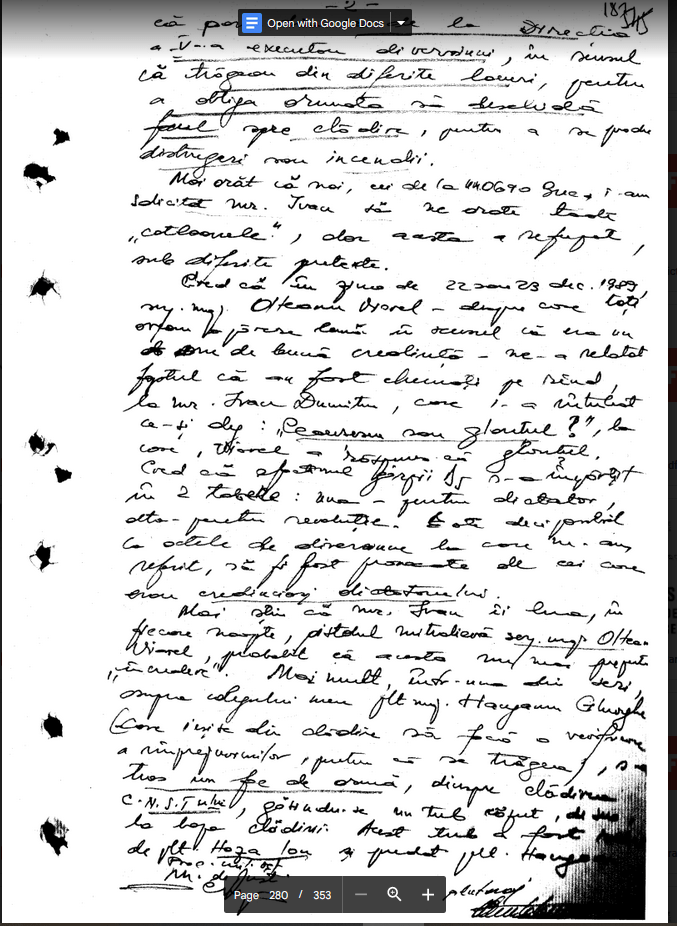 - 2 -
187
că la Direcția
a V-a executau diversiuni, în sensul
că trăgeau din diferite locuri, pentru
a obliga armata să deschidă
focul spre clădire, pentru a se produce
distrugeri sau incendii.
Mai arăt că noi, cei de la UM 0690 i-am
solicitat mr. Ivan să ne arate toate
„cotloanele”, dar acesta a refuzat,
sub diferite pretexte.
Cred că în ziua de 22 sau 23 dec. 1989,
Olteanu Viorel - despre care toți
în sensul că era un
om de bună credință - ne-a relatat
faptul că au fost chemați pe rând,
la mr. Ivan Dumitru, care i-a întrebat
ce-și dg: „Ceaușescu sau glontul?”, la
care, Viorel a răspuns că glontul.
Cred că efectivul s-a împărțit
în 2 tabere: una - pentru dictator,
alta - pentru revoluție. Este deci posibil
ca actele de diversiune la care m-am
referit, să fi fost provocate de cei care
erau credincioși dictatorului.
Mai știu că mr. Ivan îi lua, în
fiecare noapte, pistolul mitralieră serg. maj. Olteanu
Viorel, probabil că acesta nu mai prezenta
„încredere”. Mai mult, într-una din seri,
asupra colegului meu plt. maj. Hauganu Gheorghe
(care ieșise din clădire să facă o verificare
a împrejurimilor, pentru că se trăgea), s-a
tras un foc de armă, dinspre clădirea
C.N.S.T.ului, găsindu-se un tub
la baza clădirii. Acest tub a fost
de plt. Hoza Ion și predat plt. Hauganu
Open with Google Docs
Page 280 / 353